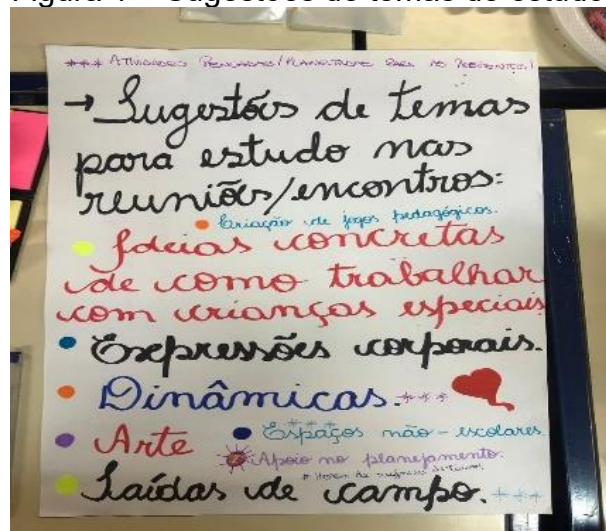 Figura 4 – Sugestões de temas de estudo
*** Atividades pensadas/planejadas para as
→ Sugestões de temas
para estudo nas
reuniões/encontros:
• Criação de jogos pedagógicos.
• Ideias concretas
de como trabalhar
com crianças especiais
• Expressões corporais.
• Dinâmicas. ***
• Arte • Espaços não-escolares
Apoio no planejamento.
• Saídas de campo. ***